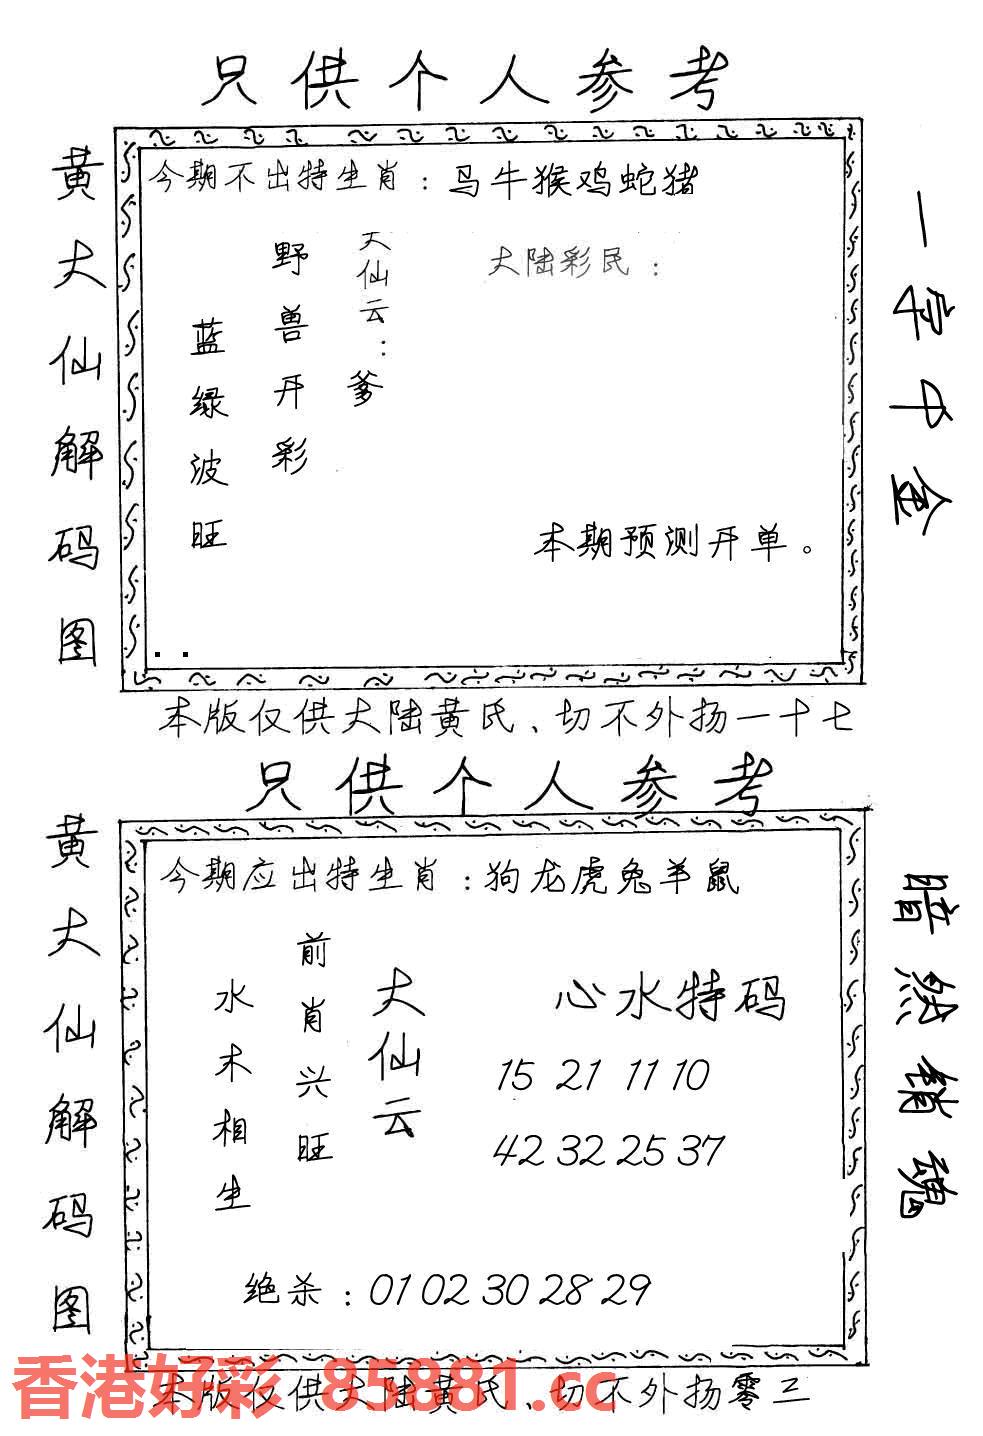 只供个人参考
黄大仙解码图
今期不出特生肖：马牛猴鸡蛇猪
大仙云：爹
野兽开彩
蓝绿波旺
大陆彩民：
本期预测开单。
一字中金
本版仅供大陆黄氏、切不外扬一十七
只供个人参考
黄大仙解码图
今期应出特生肖：狗龙虎兔羊鼠
大仙云
前肖兴旺
水木相生
心水特码
15 21 11 10
42 32 25 37
绝杀：01 02 30 28 29
暗然销魂
本版仅供大陆黄氏、切不外扬零三
香港好彩 85881.cc